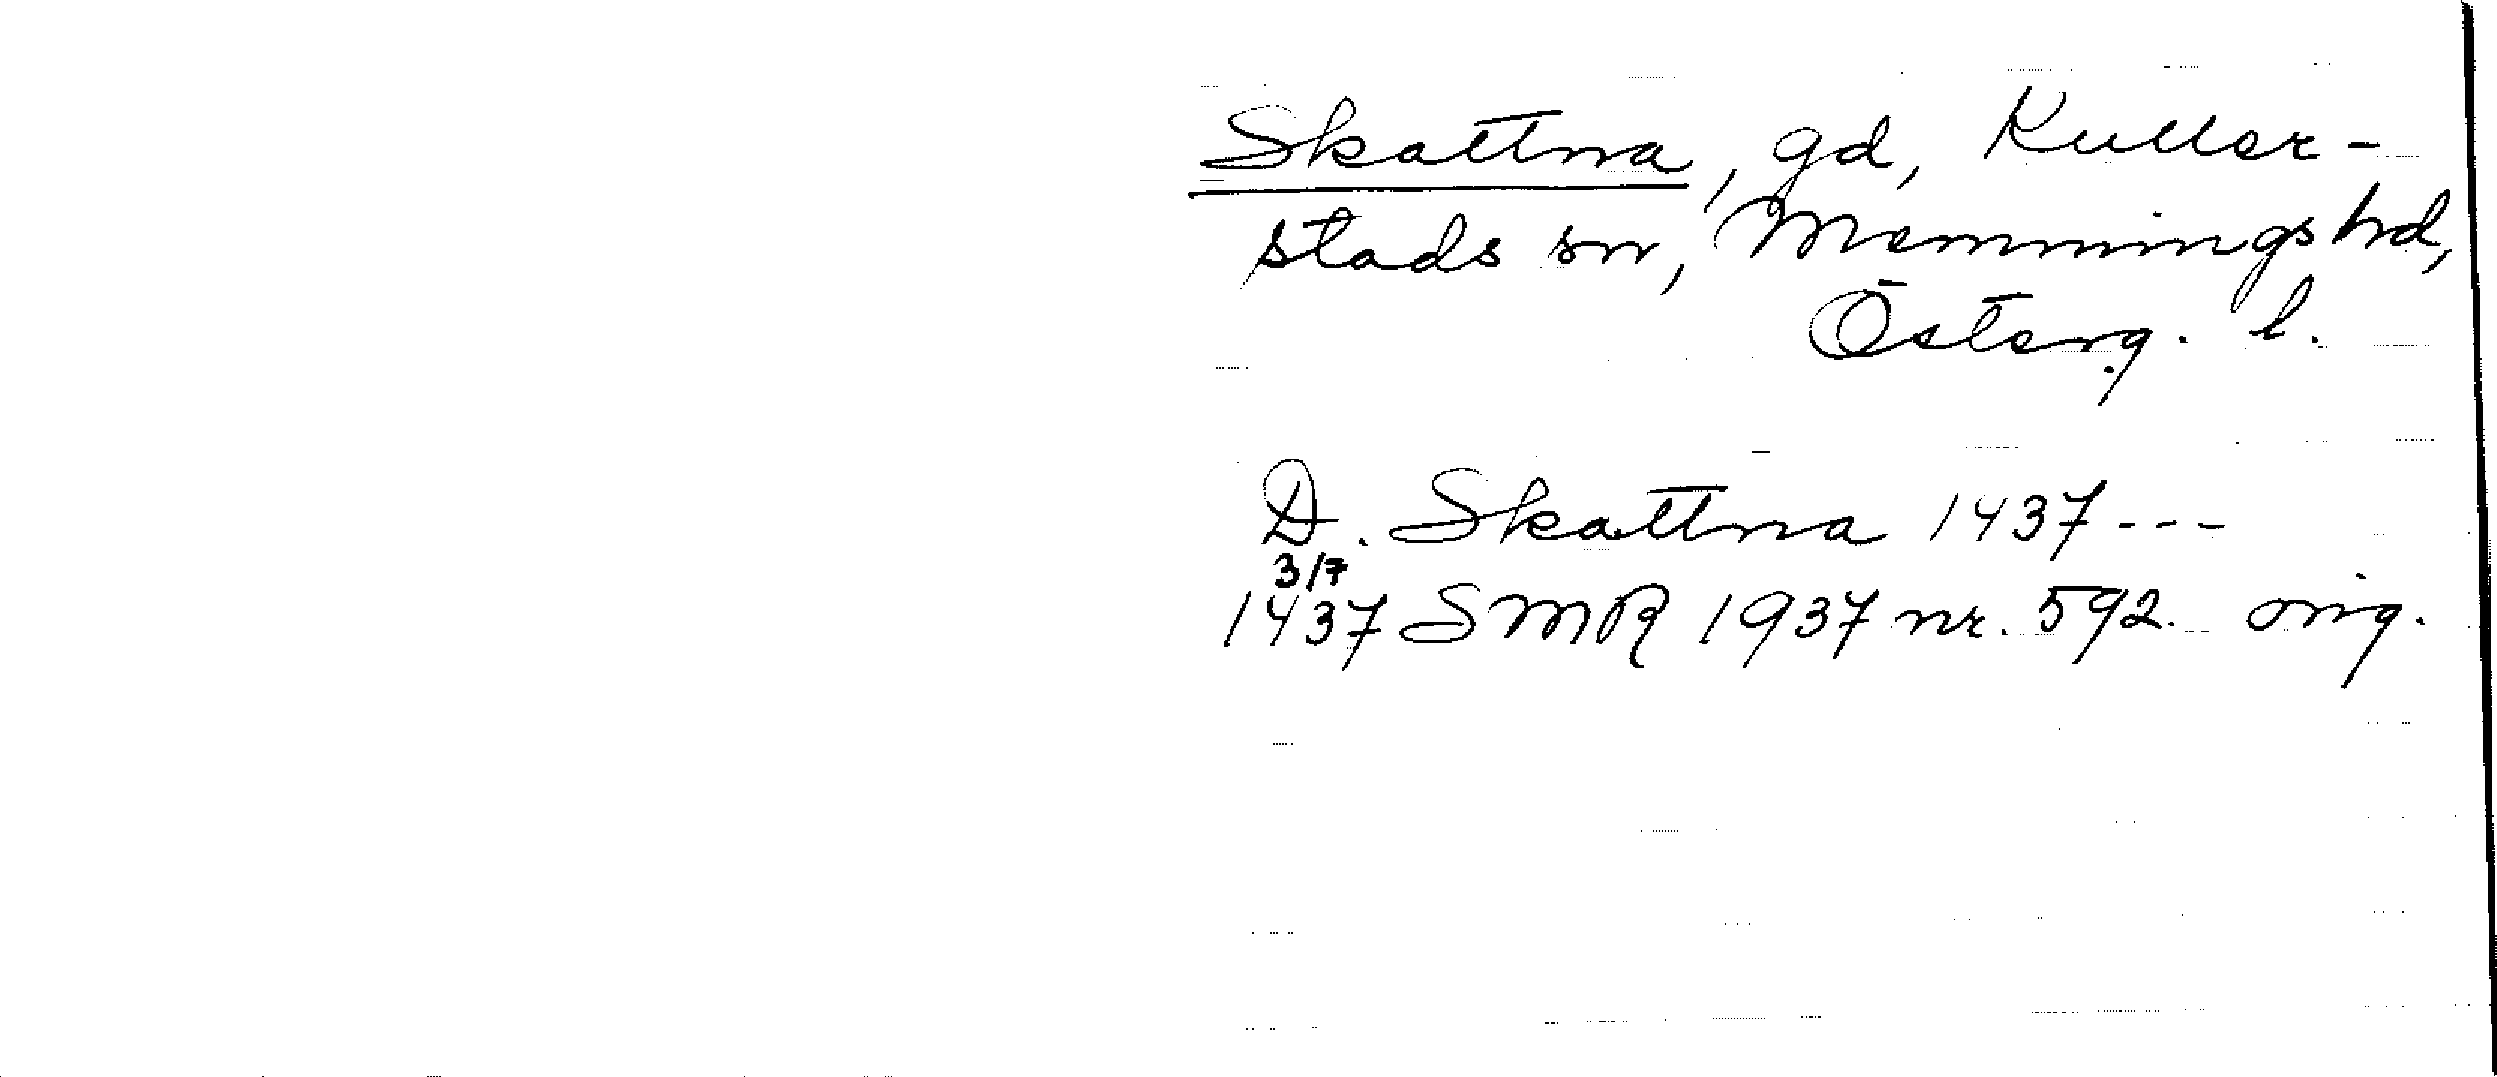 Skattna, gd, Kuller-
stads sn, Memmings hd,
Österg. l.
D. Skattna 1437---
3/7
1437 SMR 1937 nr. 592. orig.